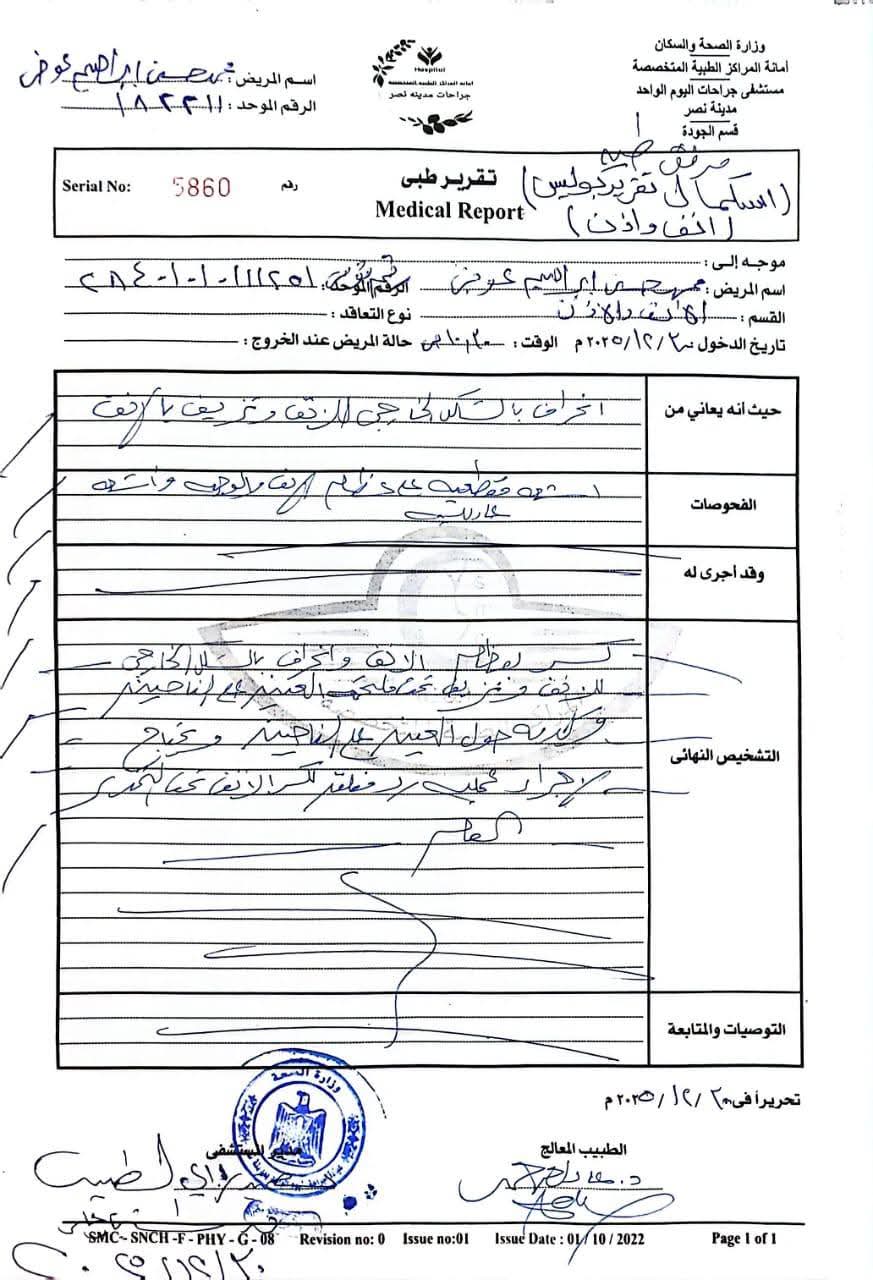 وزارة الصحة والسكان
أمانة المراكز الطبية المتخصصة
مستشفى جراحات اليوم الواحد
مدينة نصر
قسم الجودة
Hospital
جراحات مدينه نصر
اسم المريض: محمد حسين ابراهيم عوض
الرقم الموحد: ١٨٢٢١١
مرفق طيه
(استكمالى تقرير بوليس)
(انف واذن)
تقرير طبى
Medical Report
Serial No: 5860 رقم
موجه إلى:
اسم المريض: محمد حسين ابراهيم عوض الرقم الموحد: ٢٨٤٠١٠١٠١١١٢٥١
القسم: الانف والاذن نوع التعاقد:
تاريخ الدخول ٢٠٢٥/١٢/٢٠ م الوقت: ١٠,٣٠ ص حالة المريض عند الخروج:
حيث أنه يعاني من
انحراف بالشكل الخارجى للانف ونزيف بالانف
الفحوصات
اشعه مقطعيه على عظام الانف والوجه واشعه
عاديه
وقد أجرى له
التشخيص النهائى
كسر بعظام الانف وانحراف بالشكل الخارجى
للانف ونزيف تحت ملتحمة العينين على الناحيتين
وكدمه حول العينين على الناحيتين ويحتاج
لاجراء عمليه رد مغلق لكسر الانف تحت التخدير
العام
التوصيات والمتابعة
تحريرا فى ٢٠٢٥/١٢/٢٠ م
الطبيب المعالج
مدير المستشفى
وزارة الصحة
٢٠٢٥/١٢/٢٠
SMC- SNCH -F - PHY - G - 08 Revision no: 0 Issue no:01 Issue Date : 01 / 10 / 2022 Page 1 of 1